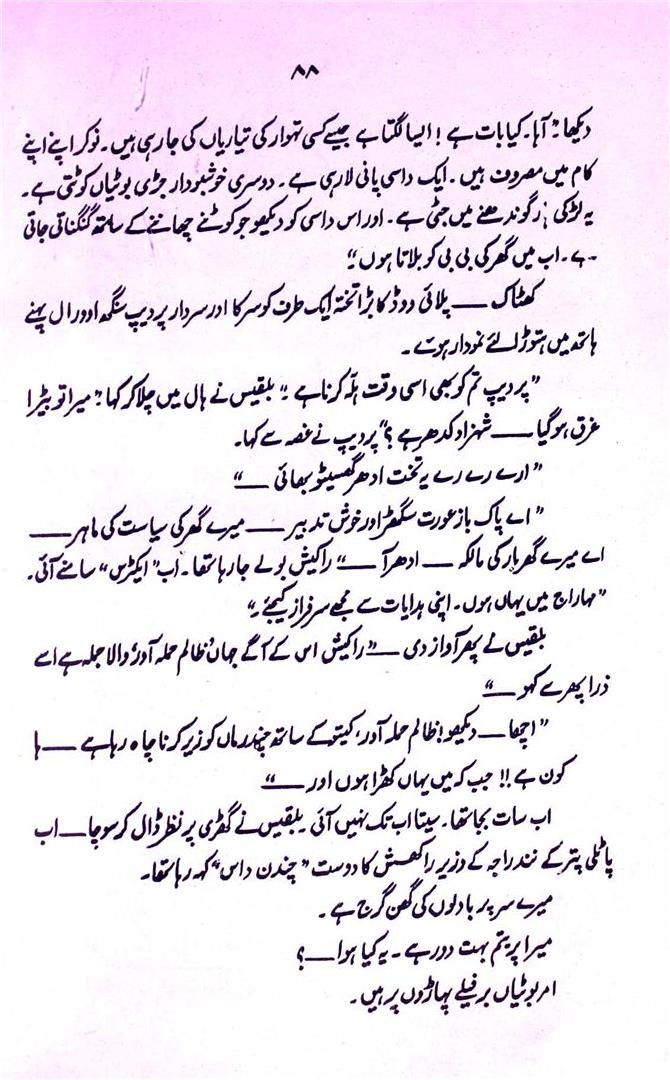 ۸۸
دیکھا۔" آہا۔ کیا بات ہے! ایسا لگتا ہے جیسے کسی تہوار کی تیاریاں کی جا رہی ہیں۔ نوکر اپنے اپنے
کام میں مصروف ہیں۔ ایک داسی پانی لا رہی ہے۔ دوسری خوشبودار جڑی بوٹیاں کوٹتی ہے۔
یہ لڑکی ہار گوندھنے میں جٹی ہے۔ اور اس داسی کو دیکھو جو کوٹنے چھاننے کے ساتھ گنگناتی جاتی
ہے۔ اب میں گھر کی بی بی کو بلاتا ہوں۔"
کھٹاک —— پلائی ووڈ کا بڑا تختہ ایک طرف کو سرکا اور سردار پردیپ سنگھ اوورال پہنے
ہاتھ میں ہتوڑا لئے نمودار ہوئے۔
"پردیپ تم کو بھی اسی وقت ہلّہ کرنا ہے۔" بلقیس نے ہال میں چلا کر کہا۔ "میرا تو بیڑا
غرق ہو گیا —— شہزاد کدھر ہے؟" پردیپ نے غصہ سے کہا۔
"ارے رے رے یہ تخت ادھر گھسیٹو بھائی ——"
"اے پاک باز عورت سگھڑ اور خوش تدبیر —— میرے گھر کی سیاست کی ماہر ——
اے میرے گھر بار کی مالکہ —— ادھر آ ——" راکیش بولے جا رہا تھا۔ اب "ایکٹرس" سامنے آئی۔
"مہاراج میں یہاں ہوں۔ اپنی ہدایات سے مجھے سرفراز کیجئے۔"
بلقیس نے پھر آواز دی —— "راکیش اس کے آگے جہاں ’ظالم حملہ آور‘ والا جملہ ہے اسے
ذرا پھر سے کہو ——"
"اچھا —— دیکھو! ظالم حملہ آور، کیتو کے ساتھ چندرماں کو زیر کرنا چاہ رہا ہے —— ہا
کون ہے!! جب کہ میں یہاں کھڑا ہوں اور ——"
اب سات بجا تھا۔ سیتا اب تک نہیں آئی۔ بلقیس نے گھڑی پر نظر ڈال کر سوچا —— اب
پاٹلی پتر کے نند راجہ کے وزیر راکھشش کا دوست "چندن داس" کہہ رہا تھا۔
میرے سر پر بادلوں کی گھن گرج ہے۔
میرا پریتم بہت دور ہے۔ یہ کیا ہوا ——؟
امر بوٹیاں برفیلے پہاڑوں پر ہیں۔